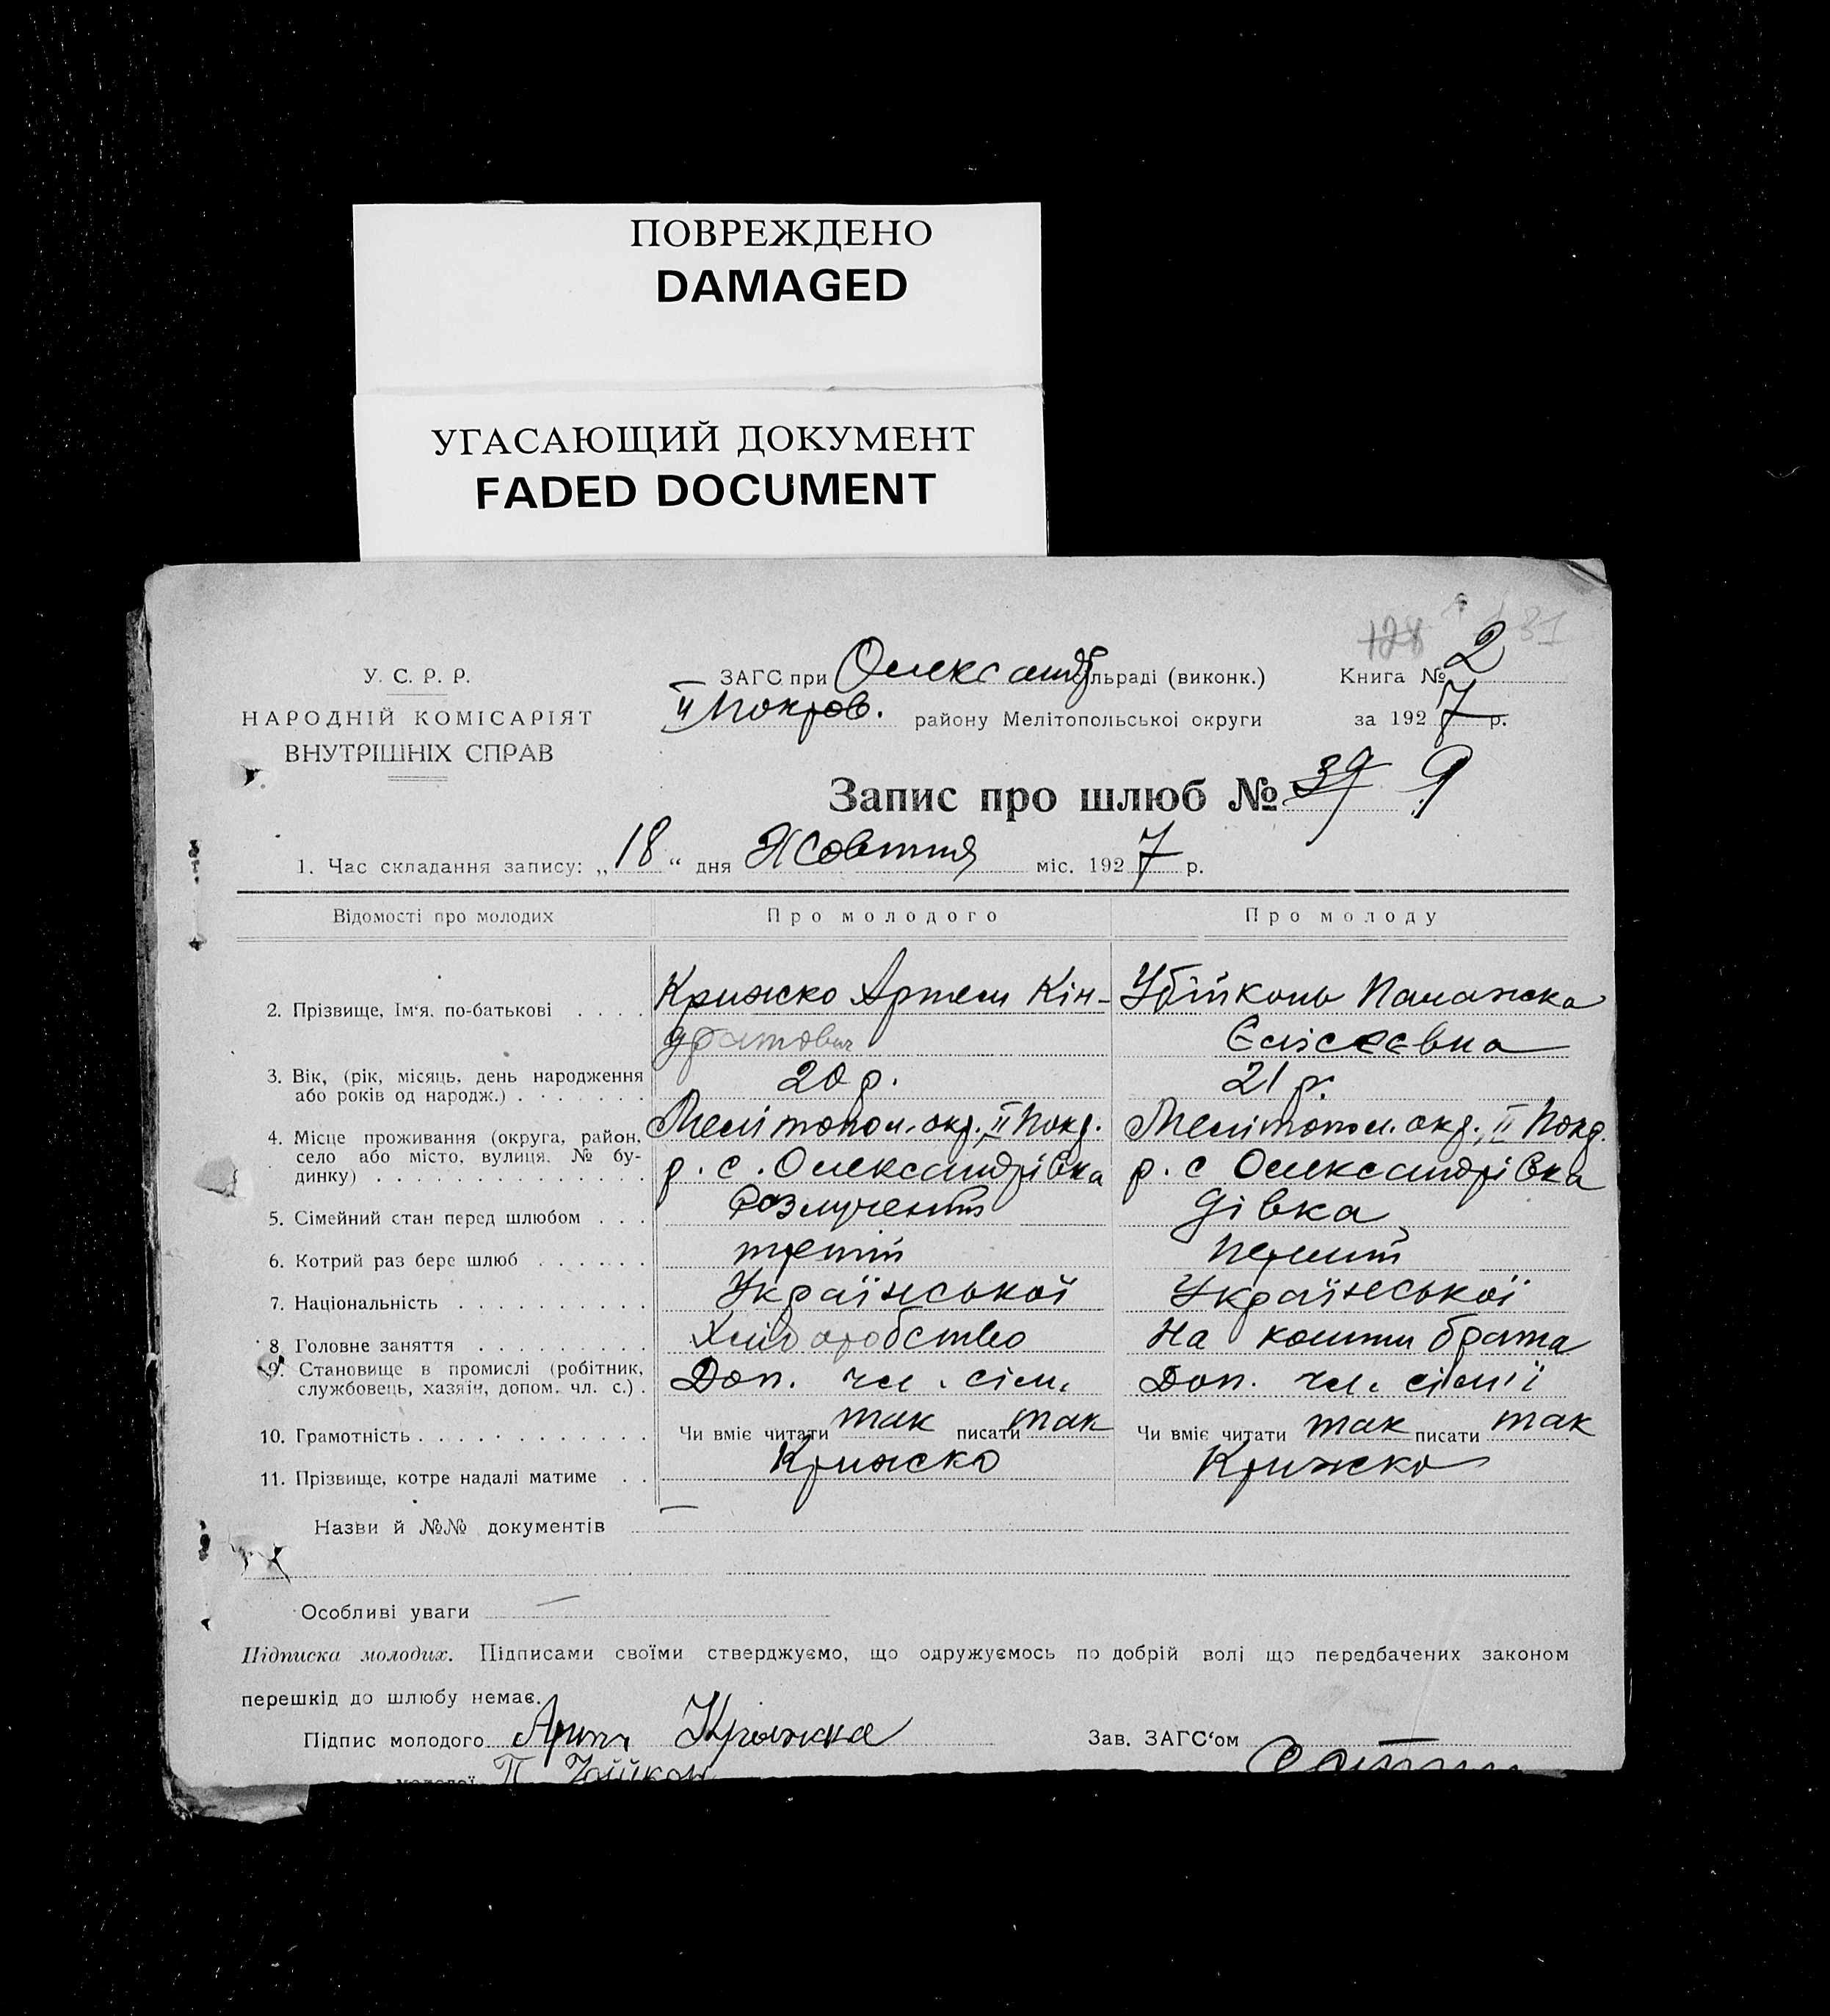 ПОВРЕЖДЕНО
DAMAGED
УГАСАЮЩИЙ ДОКУМЕНТ
FADED DOCUMENT
128 31
У. С. Р. Р.
НАРОДНІЙ КОМІСАРІЯТ
ВНУТРІШНІХ СПРАВ
ЗАГС при Олександ льраді (виконк.) Книга № 2
II Покров. району Мелітопольської округи за 1927 р.
Запис про шлюб № 39 9
1. Час складання запису: „18“ дня Жовтня міс. 1927 р.
Відомості про молодих Про молодого Про молоду
2. Прізвище, Ім‘я, по-батькові . . . . Крижко Артем Кін- Убійконь Палажка
дратович Єлісеєвна
3. Вік, (рік, місяць, день народження 20 р. 21 р.
або років од народж.) . . . . . . .
4. Місце проживання (округа, район, Мелітопол. окр., II Покр. Мелітопол. окр., II Покр.
село або місто, вулиця, № бу- р. с. Олександрівка р. с Олександрівка
динку) . . . . . . . . . . . . . .
5. Сімейний стан перед шлюбом . . . Розлучений дівка
6. Котрий раз бере шлюб . . . . . . третій перший
7. Національність . . . . . . . . . . Української Української
8. Головне заняття . . . . . . . . . Хліборобство На кошти брата
9. Становище в промислі (робітник, Доп. чл. сім. Доп. чл. сім'ї
службовець, хазяїн, допом. чл. с.) .
10. Грамотність . . . . . . . . . . . . Чи вміє читати так писати так Чи вміє читати так писати так
11. Прізвище, котре надалі матиме . . Крижко Крижко
Назви й №№ документів —
Особливі уваги —
Підписка молодих. Підписами своїми стверджуємо, що одружуємось по добрій волі що передбачених законом
перешкід до шлюбу немає.
Підпис молодого Крижка Зав. ЗАГС‘ом
молодої П